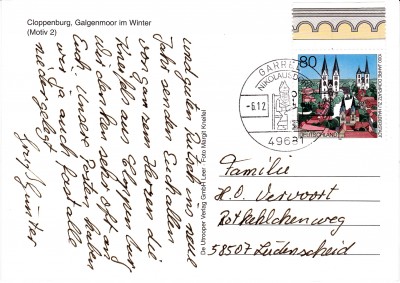 Cloppenburg, Galgenmoor im Winter
(Motiv 2)
und guten Rutsch ins neue
Jahr senden Euch allen
von ganzem Herzen die
Knospe, Cloppenburg
Wir denken sehr oft an
Euch. Unsere Posten haben
wir ja auch fast alle
niedergelegt
Günter
De Utrooper Verlag GmbH Leer · Foto Margit Kneifel
80
GARREL
NIKOLAUSDORF
-6.12
49681
DEUTSCHLAND
Familie
H.O. Vervoort
Rotkehlchenweg
58507 Lüdenscheid